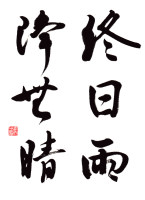 終日雨
降世晴